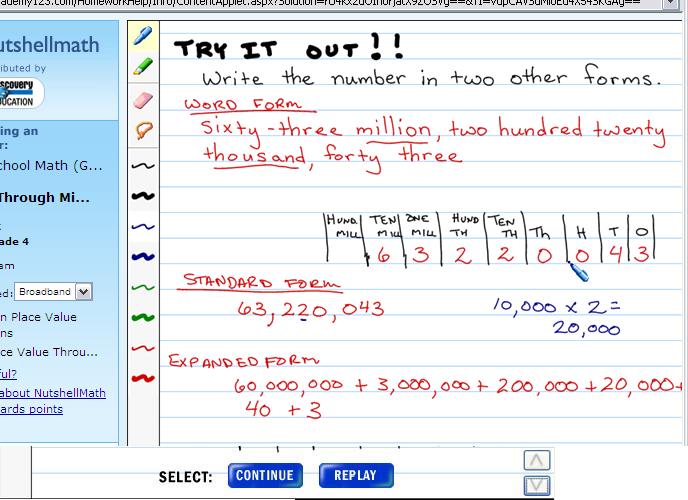 TRY IT OUT!!
Write the number in two other forms.
WORD FORM
Sixty-three million, two hundred twenty
thousand, forty three
HUND. MILL TEN MILL ONE MILL HUND TH TEN TH Th H T O
6 3 2 2 0 0 4 3
STANDARD FORM
63,220,043
10,000 x 2 =
20,000
EXPANDED FORM
60,000,000 + 3,000,000 + 200,000 + 20,000+
40 + 3
utshellmath
ibuted by
scovery
UCATION
ing an
r:
chool Math (G...
Through Mi...
ade 4
am
ed: Broadband
n Place Value
ns
ce Value Throu...
ful?
about NutshellMath
ards points
SELECT: CONTINUE REPLAY